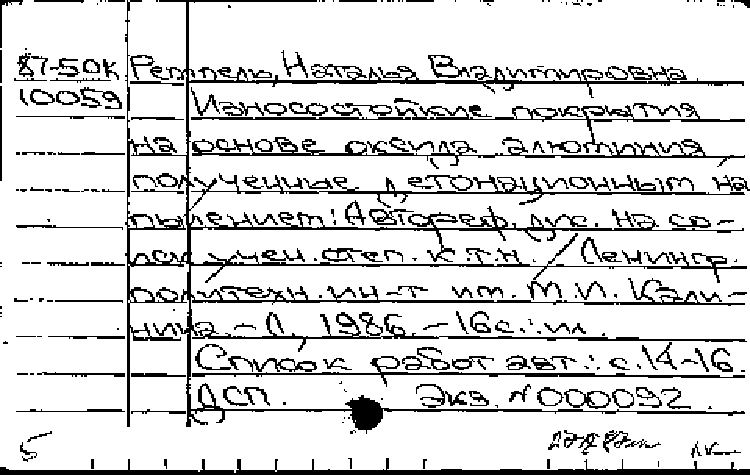 87-50К Реппель, Наталья Владимировна
10059 Износостойкие покрытия
на основе оксида алюминия
полученные детонационным на
пылением: Автореф. дис. на со-
иск учен. степ. к.т.н. / Ленингр.
политехн. ин-т им. М.И. Кали-
нина - Л., 1986. - 16с.: ил.
Список работ авт.: с. 14-16.
ДСП. Экз. №000092
5